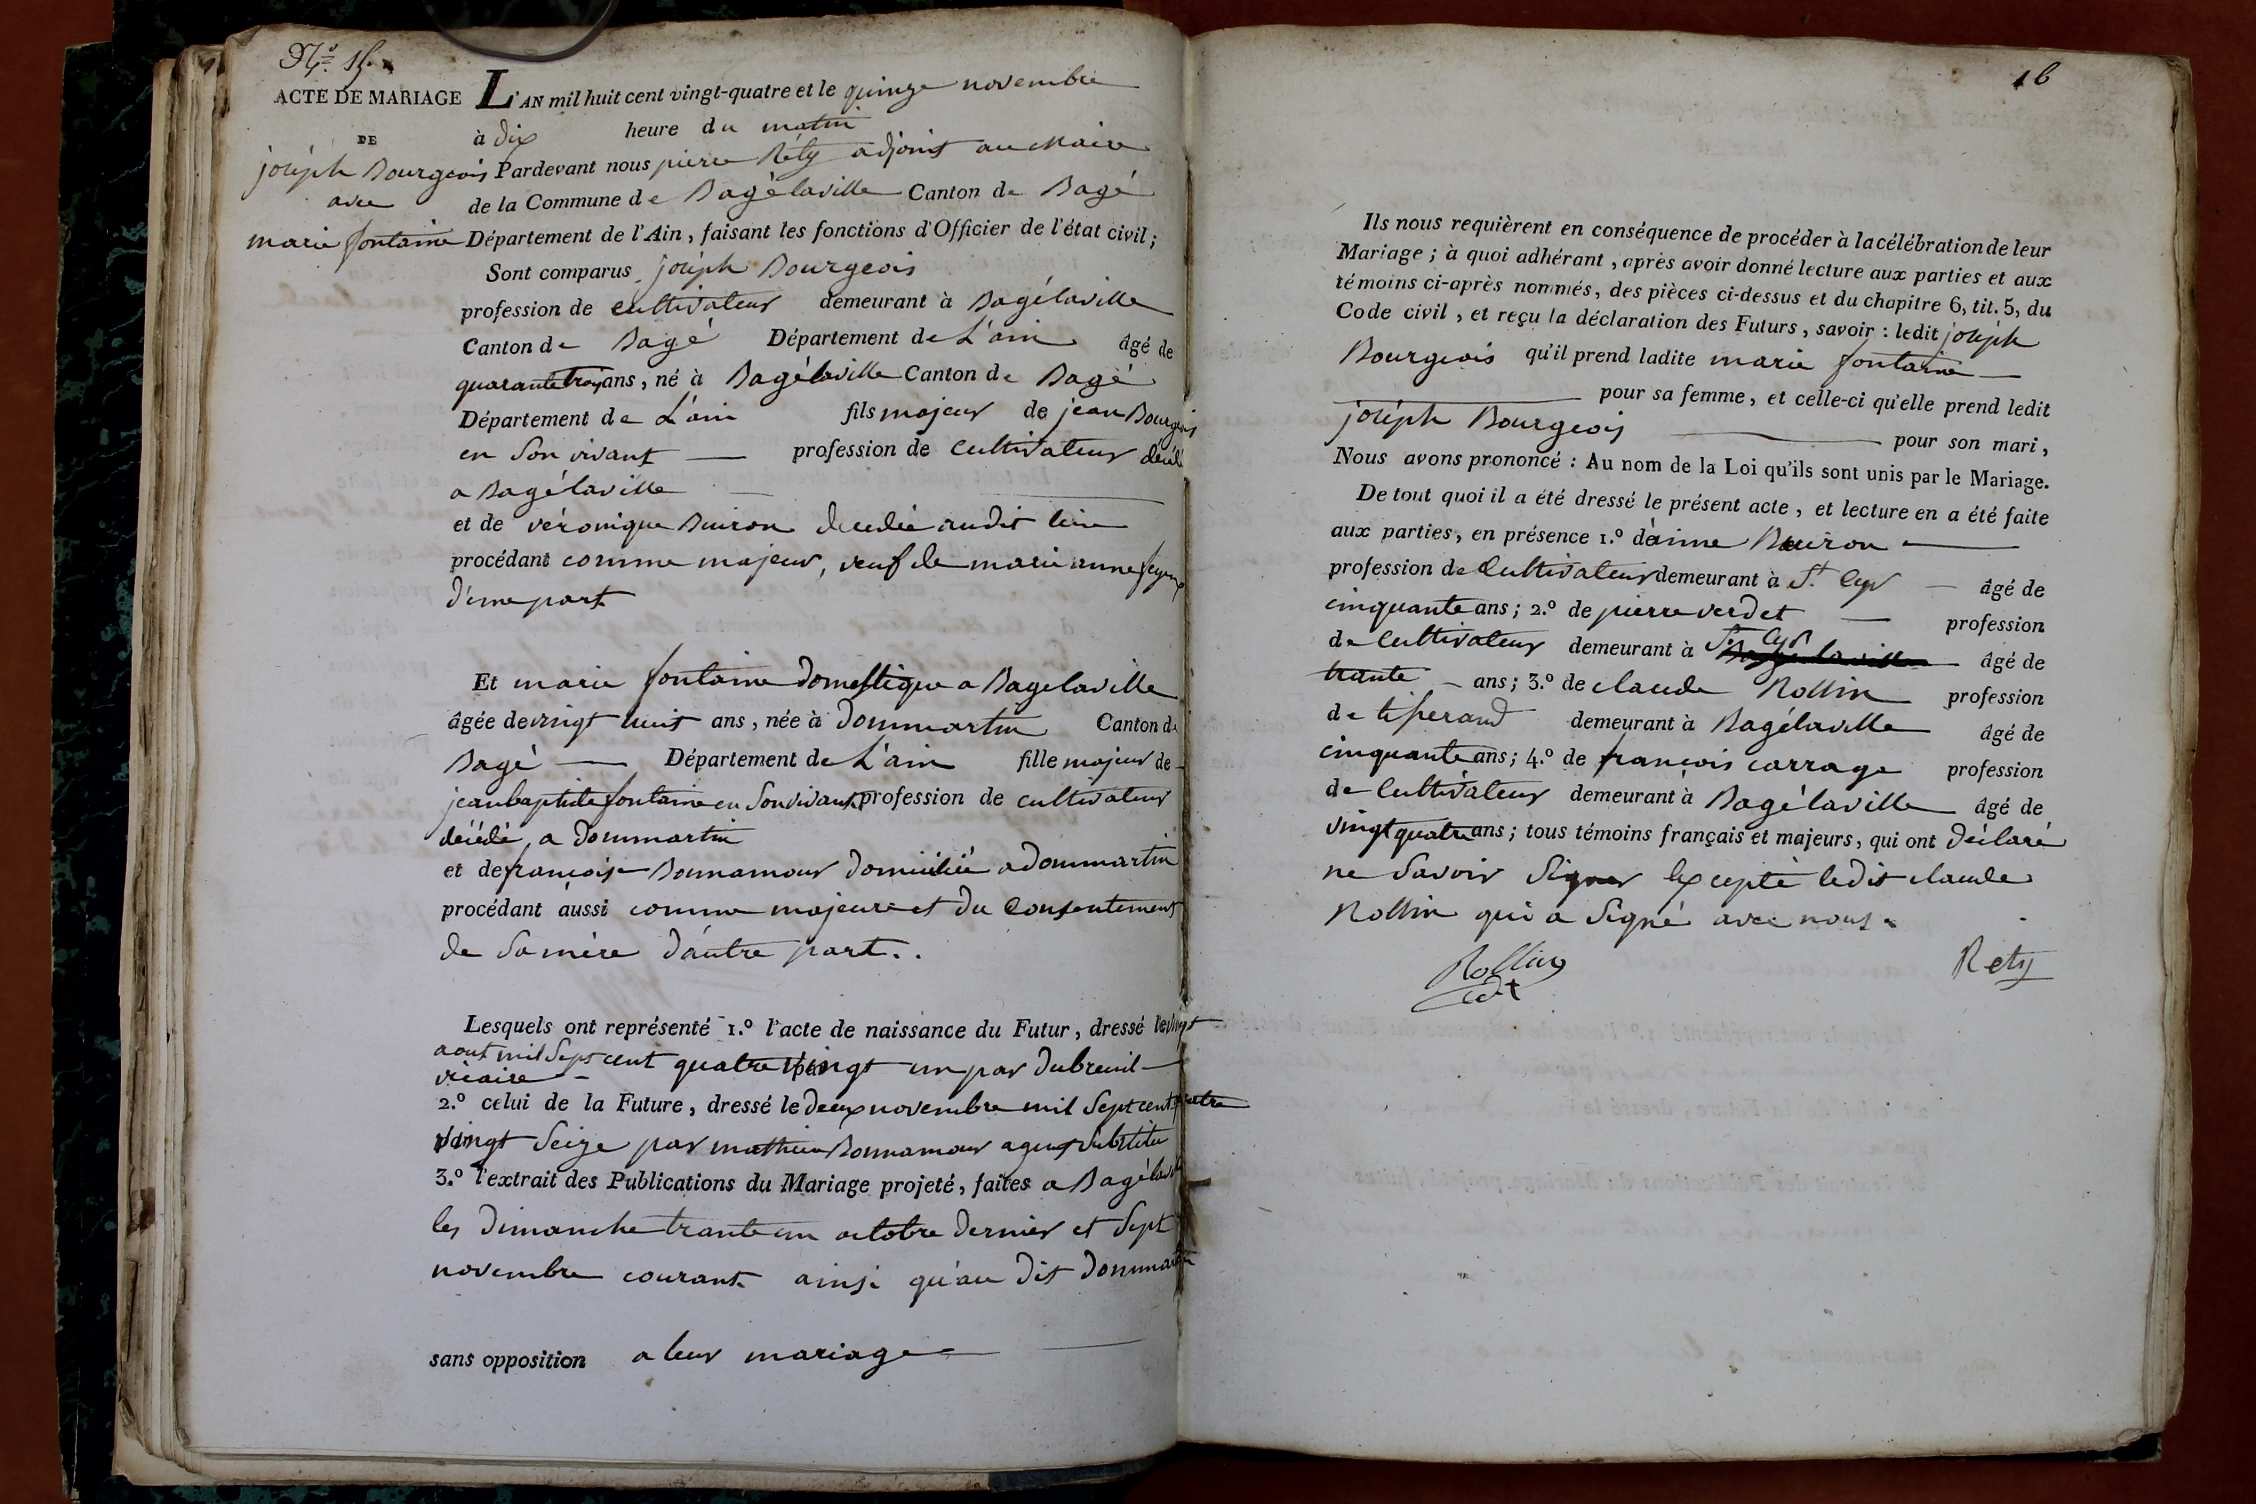 N.o 15.
ACTE DE MARIAGE
DE
joséph Bourgeois
avec
marie fontaine
L'AN mil huit cent vingt-quatre et le quinze novembre
à dix heure du matin
Pardevant nous pierre Réty adjoint au Maire
de la Commune de Bagélaville Canton de Bagé
Département de l'Ain, faisant les fonctions d'Officier de l'état civil;
Sont comparus joséph Bourgeois
profession de cultivateur demeurant à Bagélaville
Canton de Bagé Département de L'ain âgé de
quarante trois ans, né à Bagélaville Canton de Bagé
Département de L'ain fils majeur de jean Bourgeois
en son vivant profession de cultivateur décédé
a Bagélaville
et de véronique Buiron decedée audit lieu
procédant comme majeur, veuf de marie anne
d'une part
Et marie fontaine domestique a Bagelaville
âgée de vingt huit ans, née à dommartin Canton de
Bagé Département de L'ain fille majeur de
jean baptiste fontaine en son vivant profession de cultivateur
décédé, a dommartin
et de françoise Bonnamour domiciliée a dommartin
procédant aussi comme majeure et du consentement
de sa mère d'autre part..
Lesquels ont représenté 1.º l'acte de naissance du Futur, dressé le vingt
aout mil sept cent quatre vingt un par dubreuil
vicaire
2.º celui de la Future, dressé le deux novembre mil sept cent quatre
vingt seize par mathieu Bonnamour agent substitu
3.º l'extrait des Publications du Mariage projeté, faites a Bagélaville
les dimanche trante un octobre dernier et sept
novembre courant ainsi qu'au dit dommartin
sans opposition a leur mariage
16
Ils nous requièrent en conséquence de procéder à la célébration de leur
Mariage; à quoi adhérant, après avoir donné lecture aux parties et aux
témoins ci-après nommés, des pièces ci-dessus et du chapitre 6, tit. 5, du
Code civil, et reçu la déclaration des Futurs, savoir: ledit joséph
Bourgeois qu'il prend ladite marie fontaine
pour sa femme, et celle-ci qu'elle prend ledit
joséph Bourgeois pour son mari,
Nous avons prononcé: Au nom de la Loi qu'ils sont unis par le Mariage.
De tout quoi il a été dressé le présent acte, et lecture en a été faite
aux parties, en présence 1.º d'aimé Buiron
profession de Cultivateur demeurant à St. Cyr âgé de
cinquante ans; 2.º de pierre verdet profession
de Cultivateur demeurant à St. Cyr âgé de
trante ans; 3.º de claude Rollin profession
de tiserand demeurant à Bagélaville âgé de
cinquante ans; 4.º de françois carrage profession
de Cultivateur demeurant à Bagélaville âgé de
vingt quatre ans; tous témoins français et majeurs, qui ont déclaré
ne savoir signer Excepté ledit claude
Rollin qui a signé avec nous.
Rollin
Rety